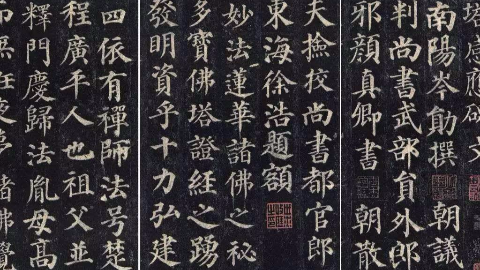 塔感應碑文
南陽岑勛撰 朝議
判尚書武部員外郎
邪顏真卿書 朝散
夫撿挍尚書都官郎
東海徐浩題額
妙法蓮華諸佛之秘
多寶佛塔證經之踴
發明資乎十力弘建
四依有禪師法号楚
程廣平人也祖父並
釋門慶歸法胤母高
夜夢諸佛覺